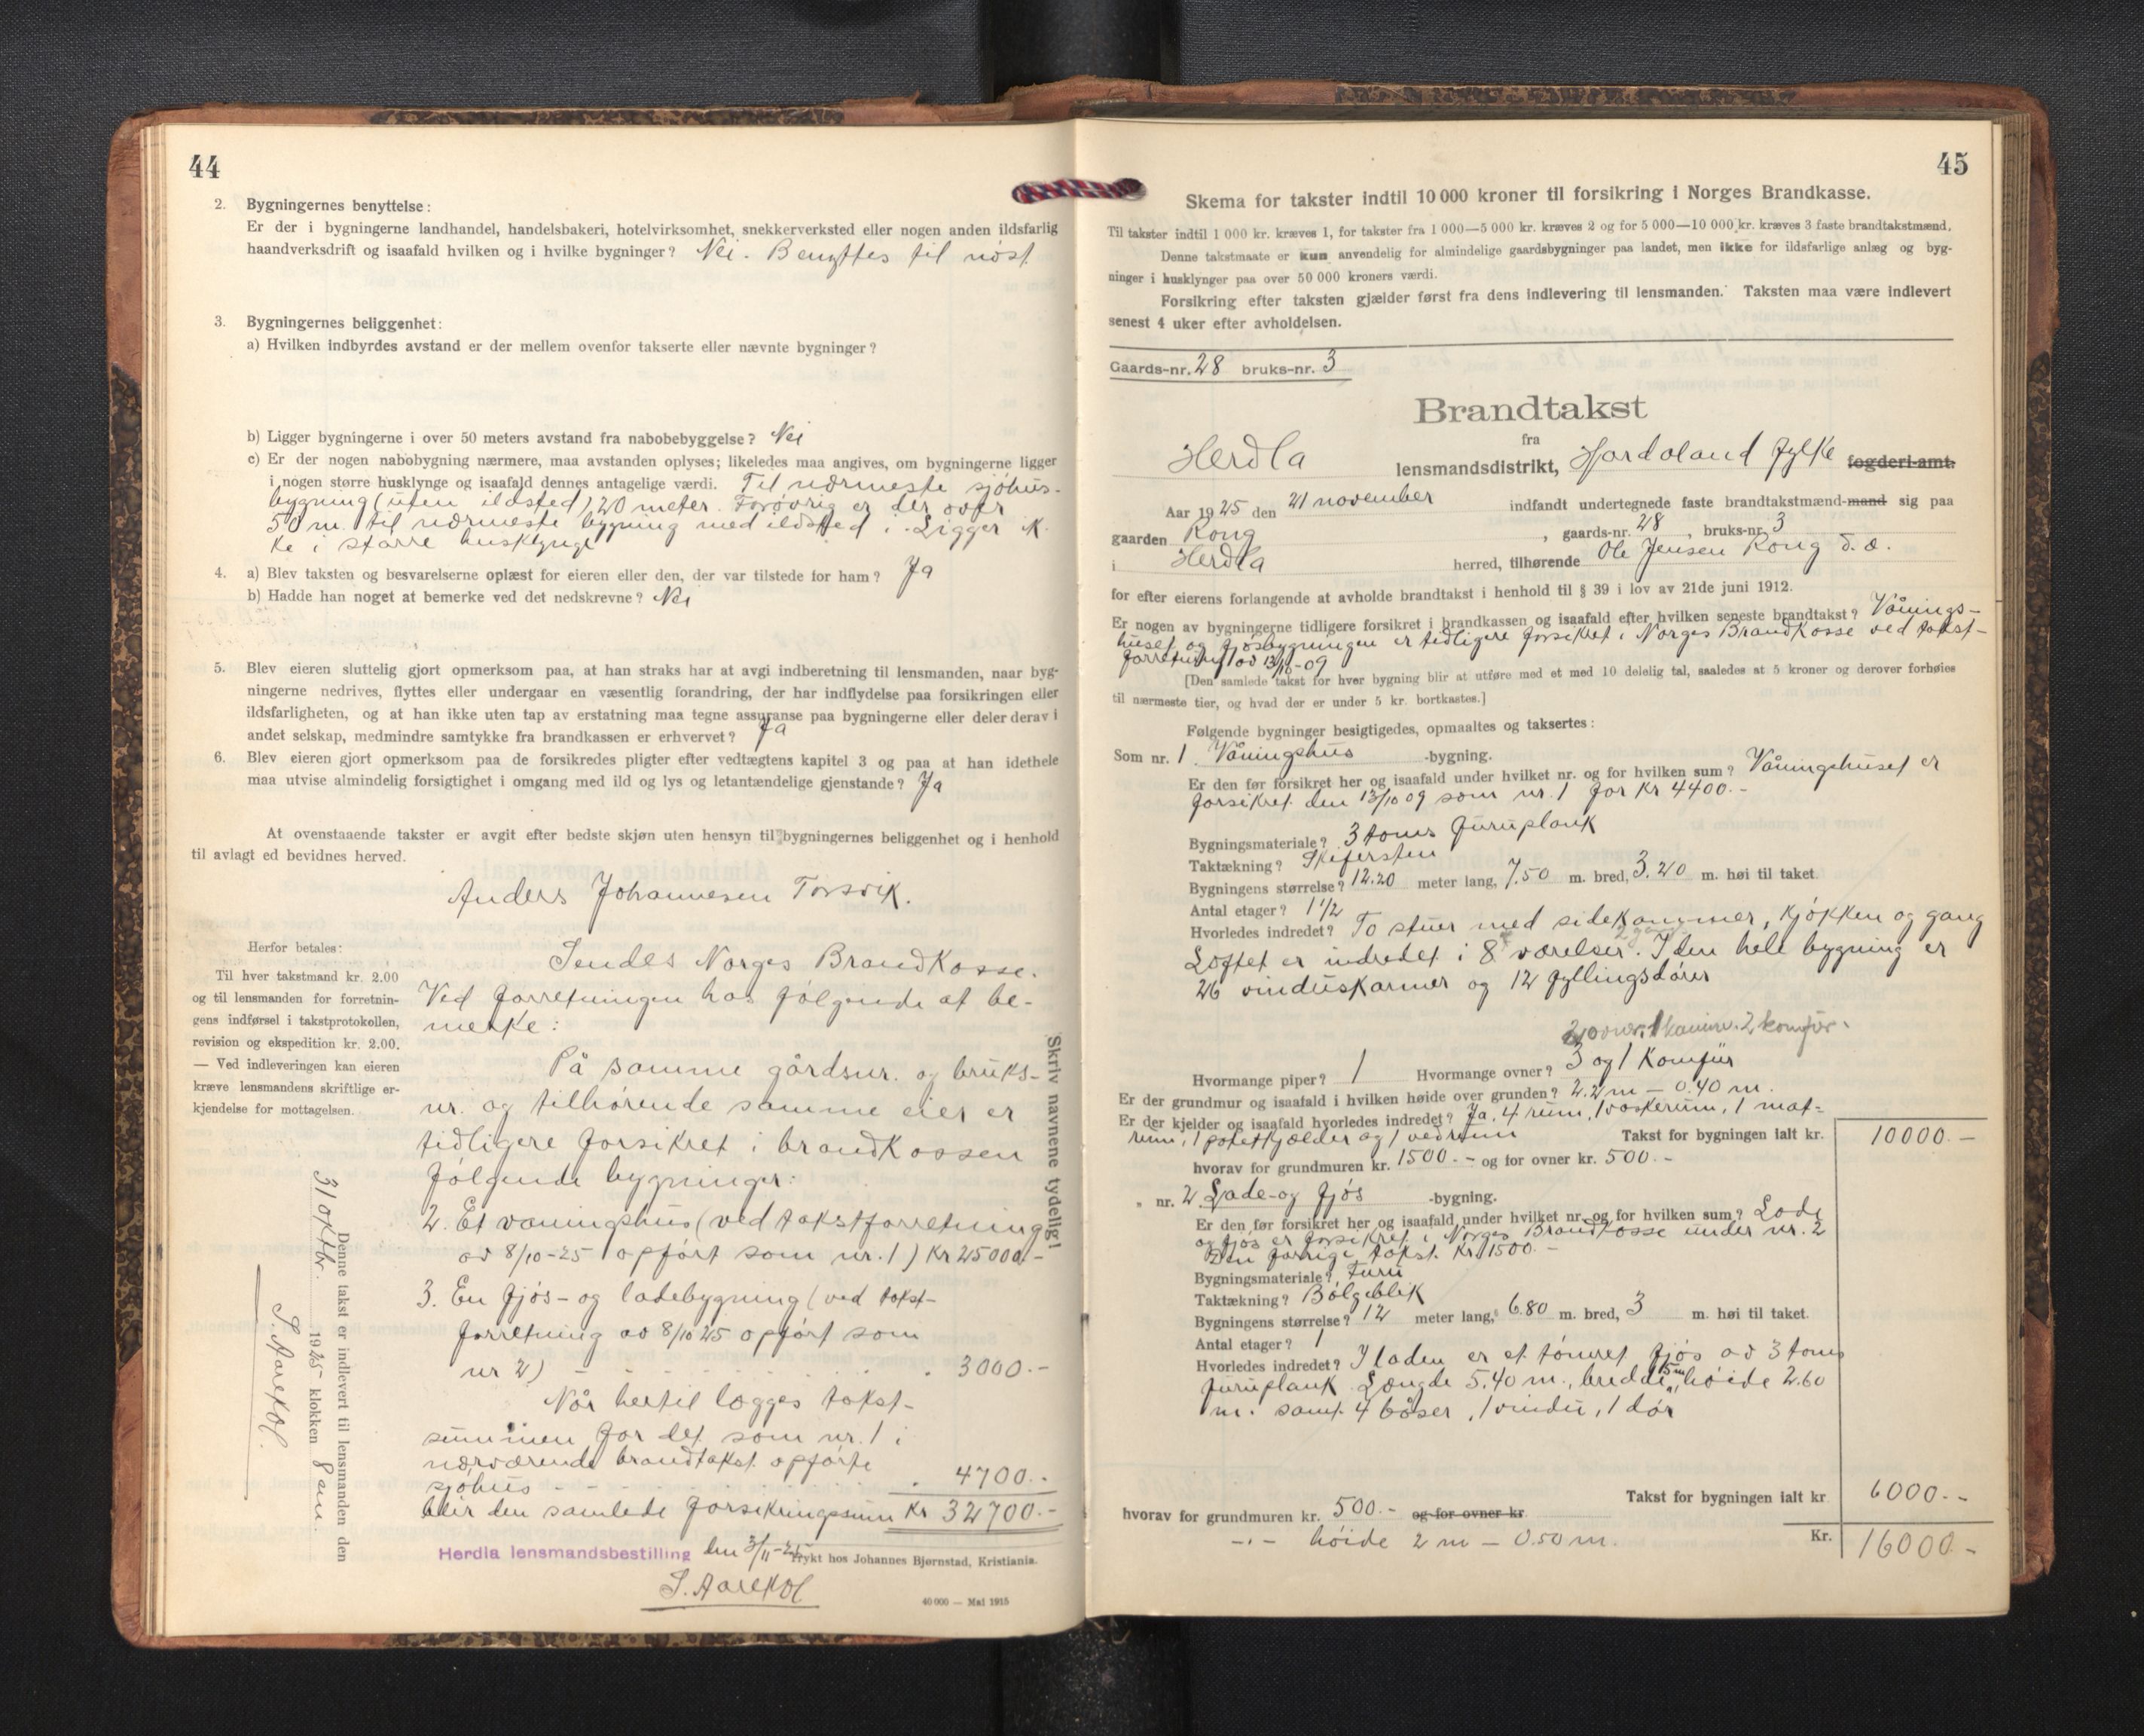 44
2. Bygningernes benyttelse:
Er der i bygningerne landhandel, handelsbakeri, hotelvirksomhet, snekkerverksted eller nogen anden ildsfarlig
haandverksdrift og isaafald hvilken og i hvilke bygninger? Nei. Benyttes til nöst
3. Bygningernes beliggenhet:
a) Hvilken indbyrdes avstand er der mellem ovenfor takserte eller nævnte bygninger?
b) Ligger bygningerne i over 50 meters avstand fra nabobebyggelse? Nei
c) Er der nogen nabobygning nærmere, maa avstanden oplyses; likeledes maa angives, om bygningerne ligger
i nogen større husklynge og isaafald dennes antagelige værdi. Til nærmeste sjöhus-
bygning (uten ildsted) 20 meter. Forövrig er der over
50 m. til nærmeste bygning med ildsted i. Ligger ik-
ke i större husklynge
4. a) Blev taksten og besvarelserne oplæst for eieren eller den, der var tilstede for ham? Ja
b) Hadde han noget at bemerke ved det nedskrevne? Nei
5. Blev eieren sluttelig gjort opmerksom paa, at han straks har at avgi indberetning til lensmanden, naar byg-
ningerne nedrives, flyttes eller undergaar en væsentlig forandring, der har indflydelse paa forsikringen eller
ildsfarligheten, og at han ikke uten tap av erstatning maa tegne assuranse paa bygningerne eller deler derav i
andet selskap, medmindre samtykke fra brandkassen er erhvervet? Ja
6. Blev eieren gjort opmerksom paa de forsikredes pligter efter vedtægtens kapitel 3 og paa at han idethele
maa utvise almindelig forsigtighet i omgang med ild og lys og letantændelige gjenstande? Ja
At ovenstaaende takster er avgit efter bedste skjøn uten hensyn til bygningernes beliggenhet og i henhold
til avlagt ed bevidnes herved.
Anders Johannesen Torsvik.
Herfor betales:
Til hver takstmand kr. 2.00
og til lensmanden for forretnin-
gens indførsel i takstprotokollen,
revision og ekspedition kr. 2.00.
— Ved indleveringen kan eieren
kræve lensmandens skriftlige er-
kjendelse for mottagelsen.
Sendes Norges Brandkasse.
Ved forretningen has følgende at be-
merke:
På samme gårdsnr. og bruks-
nr. og tilhörende samme eier er
tidligere forsikret i brandkassen
fölgende bygninger:
2. Et vaningshus (ved takstforretning
av 8/10-25 opfört som nr. 1) Kr 25000.-
3. En fjös- og ladebygning (ved takst-
forretning av 8/10 25 opfört som
nr 2) - - - - - - - 3000.-
Når hertil lægges takst-
summen for det som nr. 1 i
nærværende brandtakst opförte
sjöhus - - - - - 4700.-
blir den samlede forsikringssum Kr 32700.-
Herdla lensmandsbestilling den 3/11-25
Trykt hos Johannes Bjørnstad, Kristiania.
40 000 — Mai 1915
Skriv navnene tydelig!
Denne takst er indlevert til lensmanden den
31 oktbr. 1925 klokken 8 em.
45
Skema for takster indtil 10 000 kroner til forsikring i Norges Brandkasse.
Til takster indtil 1 000 kr. kræves 1, for takster fra 1 000—5 000 kr. kræves 2 og for 5 000—10 000 kr. kræves 3 faste brandtakstmænd.
Denne takstmaate er kun anvendelig for almindelige gaardsbygninger paa landet, men ikke for ildsfarlige anlæg og byg-
ninger i husklynger paa over 50 000 kroners værdi.
Forsikring efter taksten gjælder først fra dens indlevering til lensmanden. Taksten maa være indlevert
senest 4 uker efter avholdelsen.
Gaards-nr. 28 bruks-nr. 3
Brandtakst
fra
Herdla lensmandsdistrikt, Hordaland fylke fogderi-amt.
Aar 1925 den 21 november indfandt undertegnede faste brandtakstmænd-mand sig paa
gaarden Rong, gaards-nr. 28, bruks-nr. 3
i Herdla herred, tilhørende Ole Jensen Rong d. æ.
for efter eierens forlangende at avholde brandtakst i henhold til § 39 i lov av 21de juni 1912.
Er nogen av bygningerne tidligere forsikret i brandkassen og isaafald efter hvilken seneste brandtakst? Vånings-
huset og fjösbygningen er tidligere forsikret i Norges Brandkasse ved takst-
forretning av 13/10-09
[Den samlede takst for hver bygning blir at utføre med et med 10 delelig tal, saaledes at 5 kroner og derover forhøies
til nærmeste tier, og hvad der er under 5 kr. bortkastes.]
Følgende bygninger besigtigedes, opmaaltes og taksertes:
Som nr. 1 Våningshus -bygning.
Er den før forsikret her og isaafald under hvilket nr. og for hvilken sum? Våningshuset er
forsikret den 13/10 09 som nr. 1 for Kr 4400.-
Bygningsmateriale? 3 toms furuplank
Taktækning? Skifersten
Bygningens størrelse? 12.20 meter lang, 7.50 m. bred, 3.20 m. høi til taket.
Antal etager? 1 1/2
Hvorledes indredet? To stuer med sidekammer, kjökken og gang
Loftet er indredet i 8 værelser. I den hele bygning er
26 vinduskarmer og 12 fyllingsdörer
Hvormange piper? 1 Hvormange ovner? 3 og 1 Komfur
Er der grundmur og isaafald i hvilken høide over grunden? 2.2 m - 0.40 m.
Er der kjelder og isaafald hvorledes indredet? Ja. 4 rum, 1 vaskerum, 1 mat-
rum, 1 potetkjælder og 1 vedrum Takst for bygningen ialt kr. 10000.-
hvorav for grundmuren kr. 1500.- og for ovner kr. 500.-
„ nr. 2 Lade- og fjös -bygning.
Er den før forsikret her og isaafald under hvilket nr. og for hvilken sum? Lade
og fjös er forsikret i Norges Brandkasse under nr. 2
Den forrige takst Kr. 1500.-
Bygningsmateriale? Furu
Taktækning? Bölgeblik
Bygningens størrelse? 12 meter lang, 6.80 m. bred, 3 m. høi til taket.
Antal etager? 1
Hvorledes indredet? I laden er et tömret fjös av 3 toms
furuplank. Længde 5.40 m., bredde 5 m, höide 2.60
m. samt 4 båser, 1 vindu, 1 dör
Takst for bygningen ialt kr 6000.-
hvorav for grundmuren kr. 500.- og for ovner kr.
-"- höide 2 m - 0.50 m. Kr. 16000.-